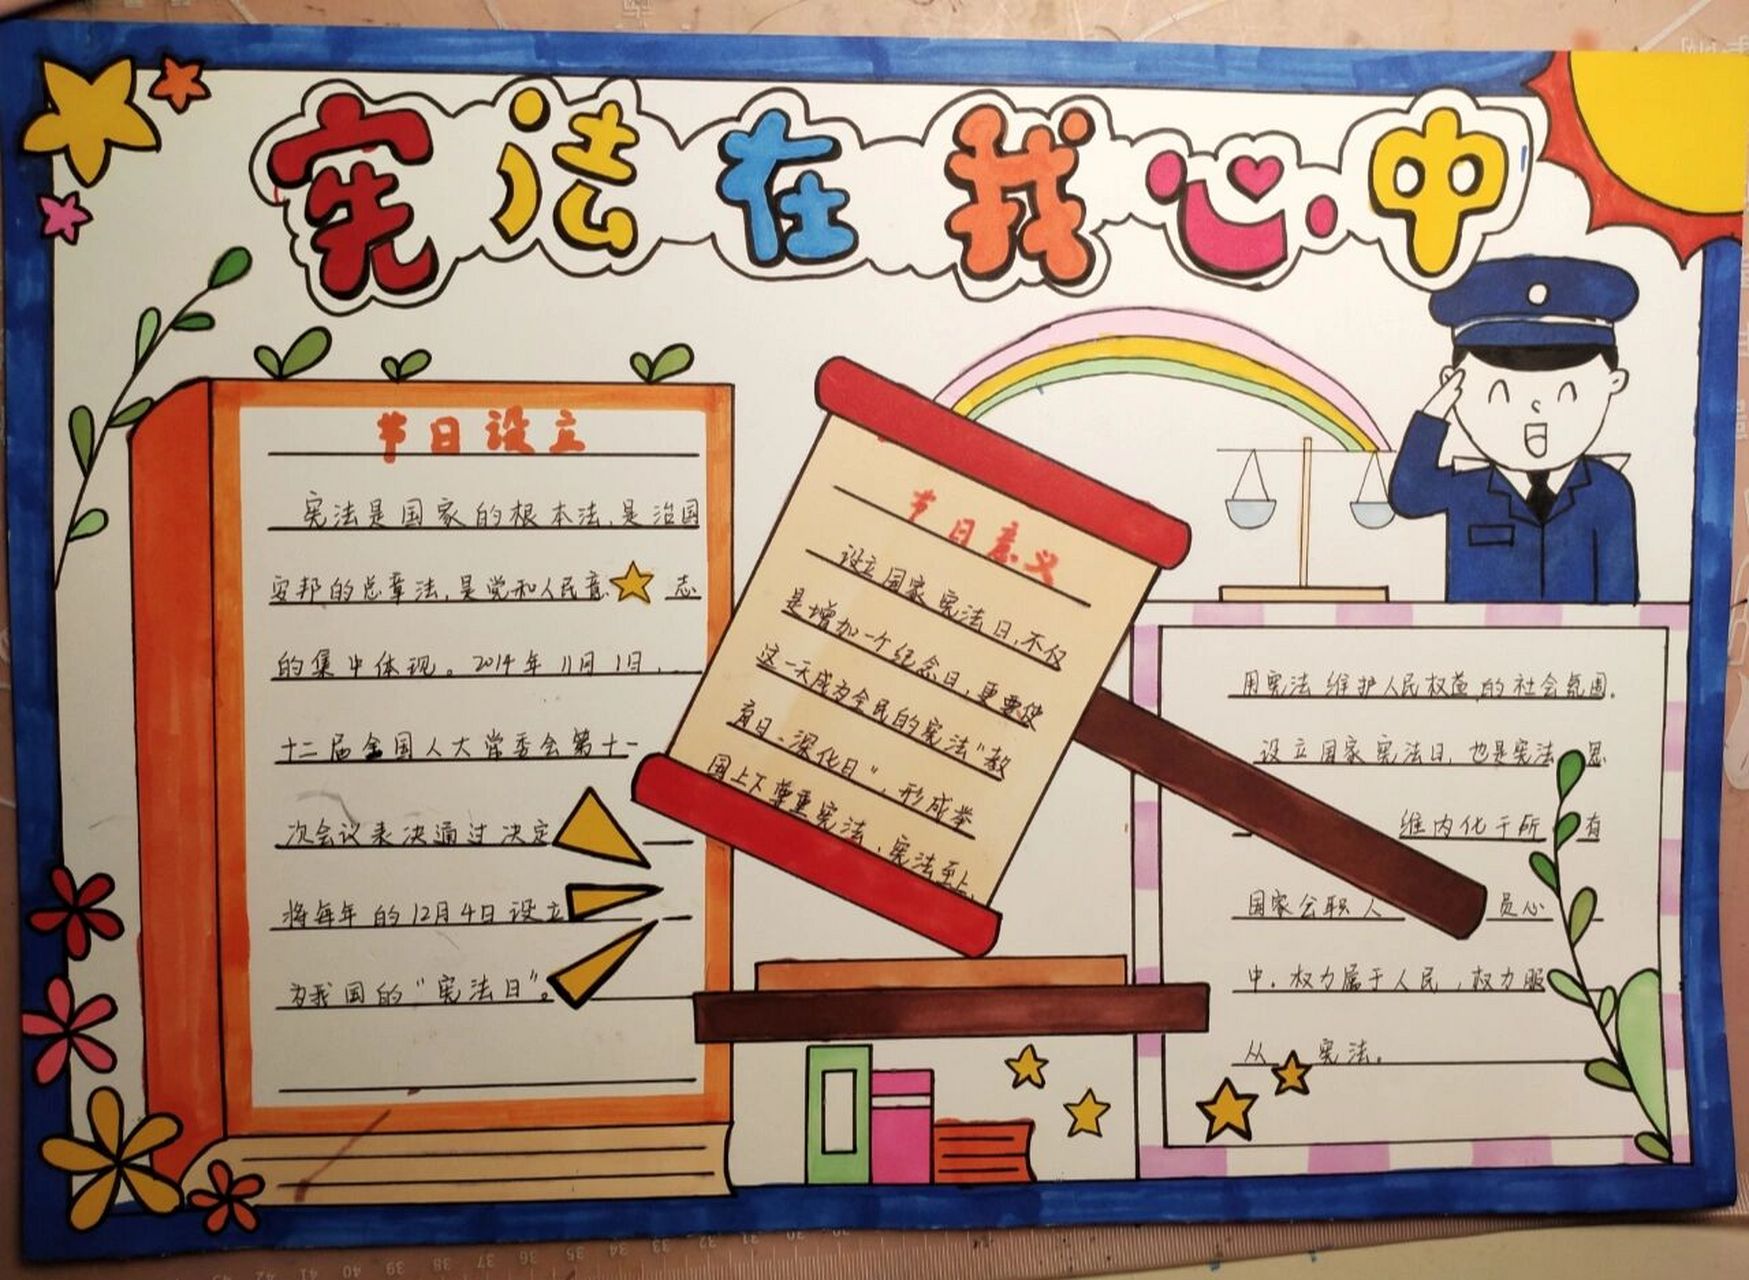 宪法在我心中
节日设立
宪法是国家的根本法,是治国
安邦的总章法,是党和人民意志
的集中体现。2014年11月1日,
十二届全国人大常委会第十一
次会议表决通过决定
将每年的12月4日设立
为我国的“宪法日”。
节日意义
设立国家宪法日,不仅
是增加一个纪念日,更要使
这一天成为全民的宪法“教
育日、深化日”,形成举
国上下尊重宪法,宪法至上,
用宪法维护人民权益的社会氛围.
设立国家宪法日,也是宪法思
维内化于所有
国家公职人员心
中.权力属于人民,权力服
从宪法。